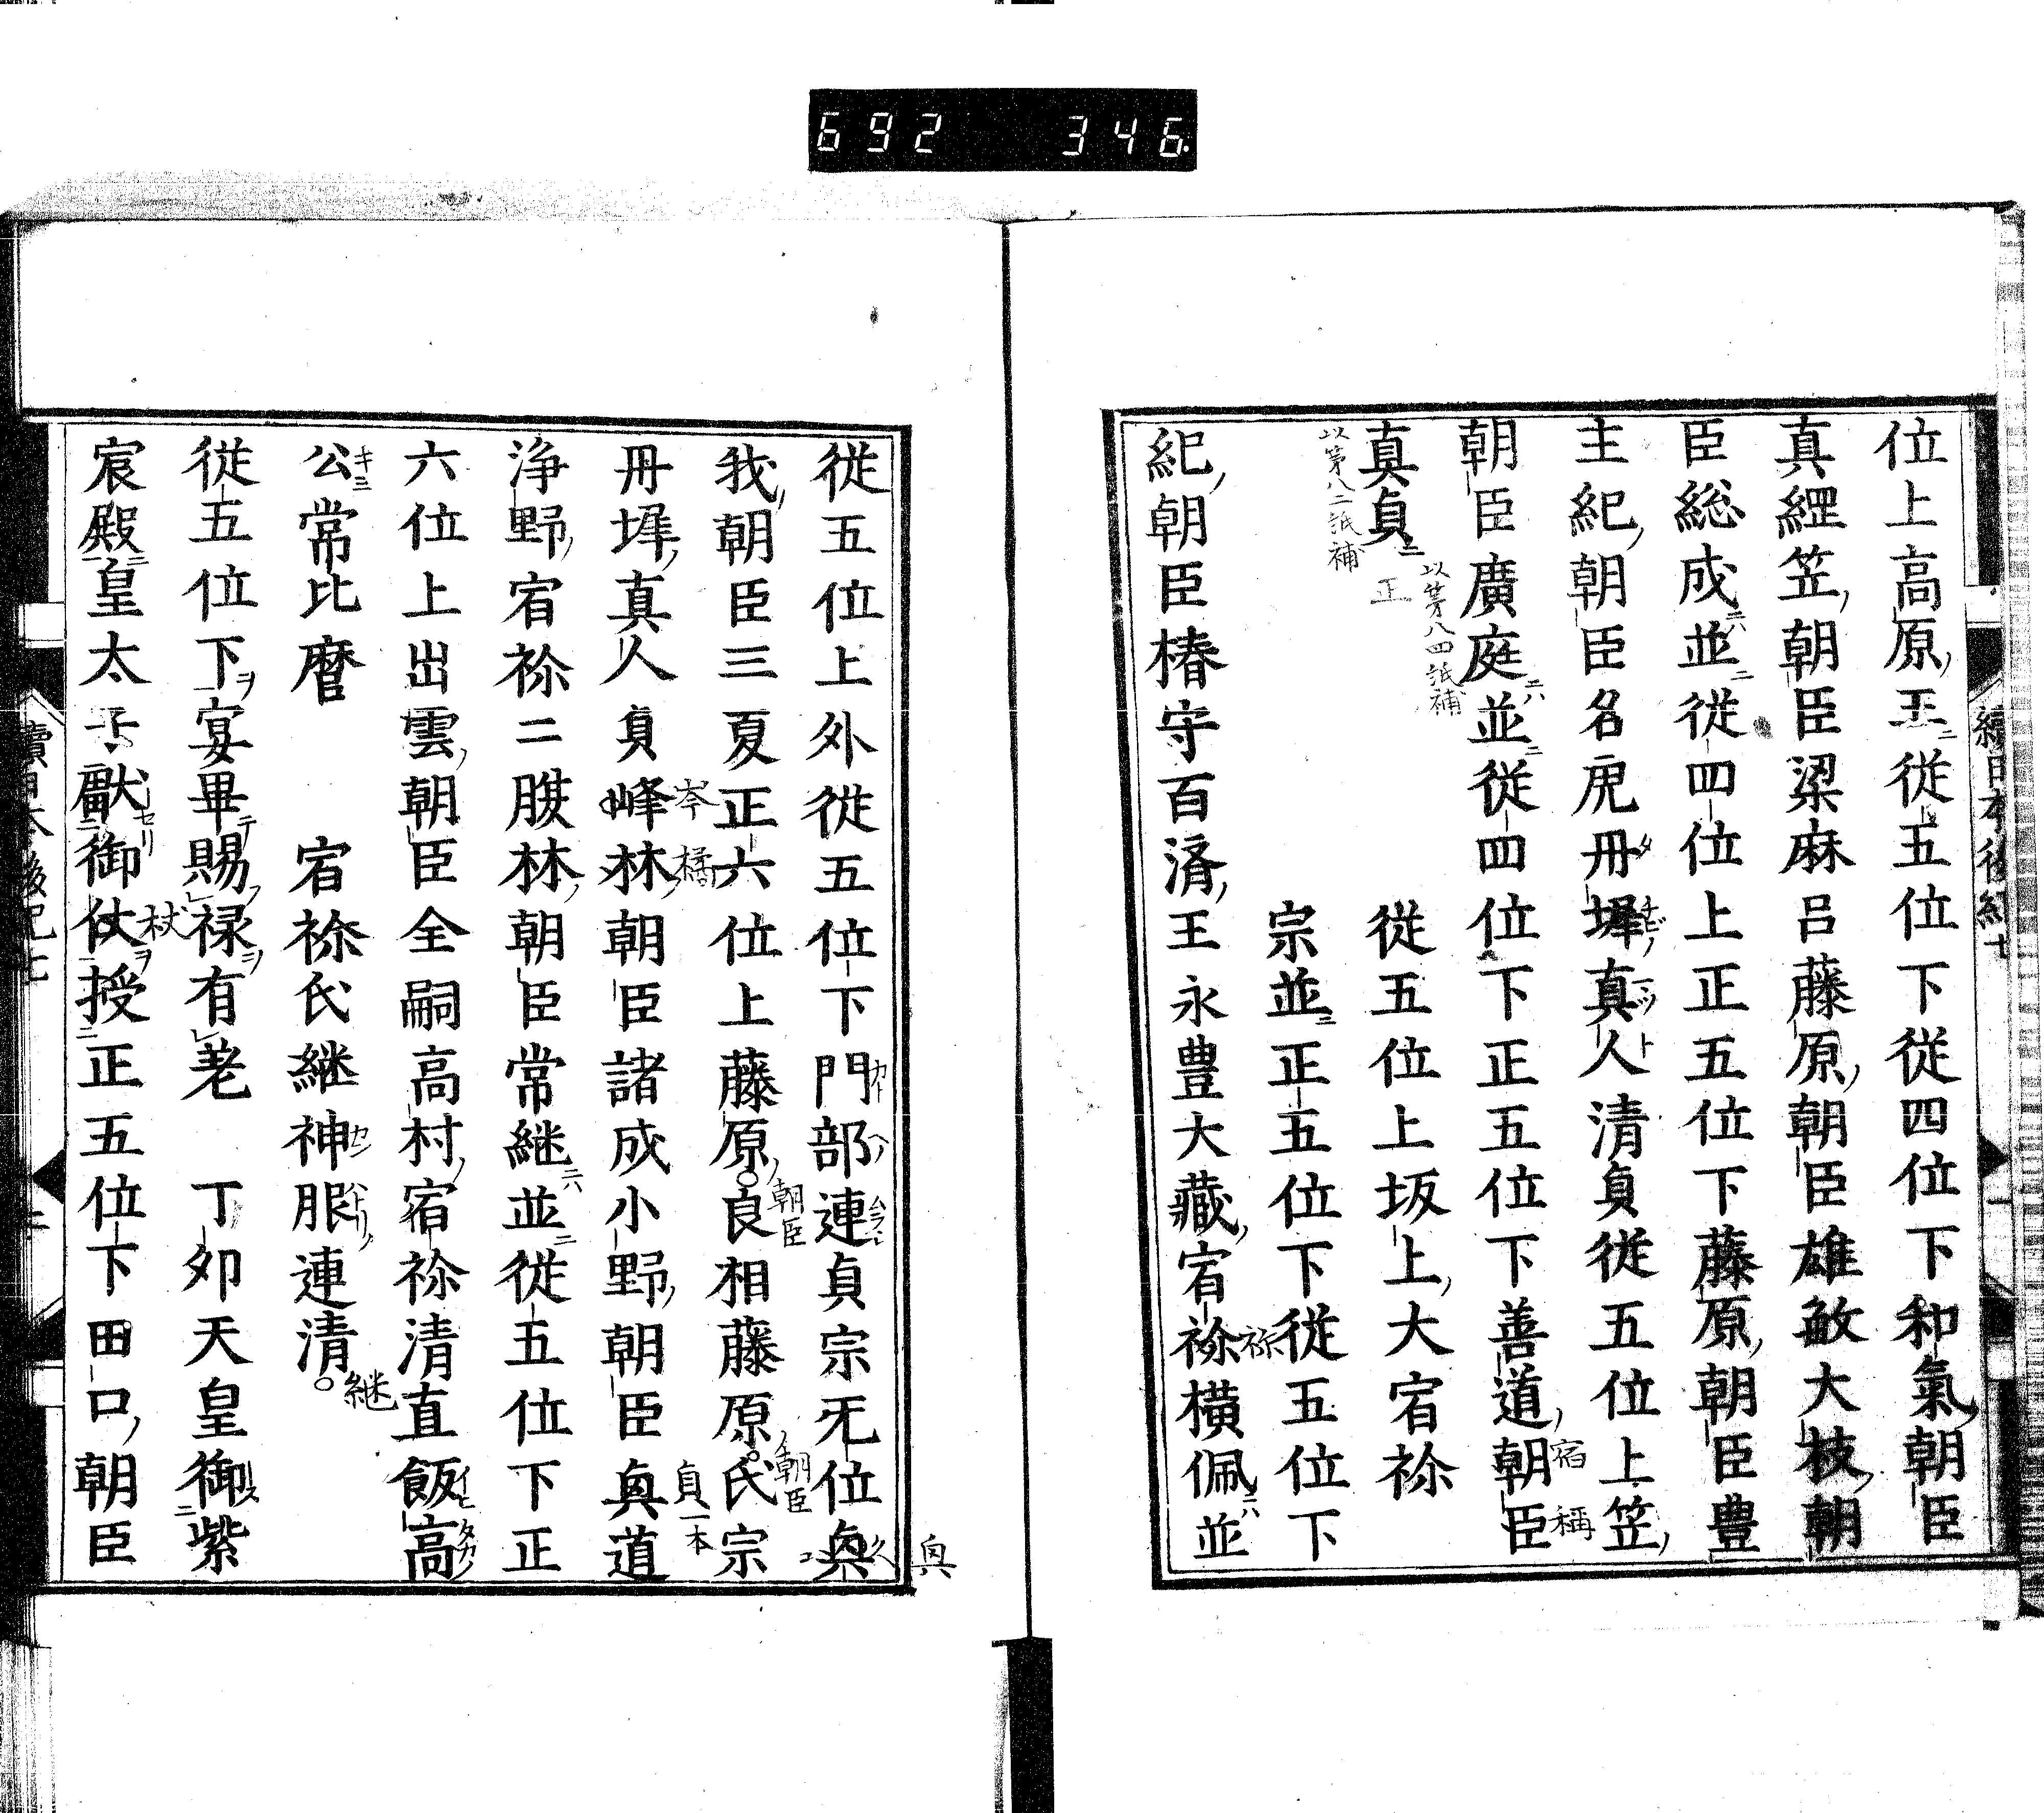 692 346
位上高原王従五位下従四位下和氣朝臣
真綱笠朝臣梁麻呂藤原朝臣雄敏大枝朝
臣総成並従四位上正五位下藤原朝臣豊
主紀朝臣名虎丹墀真人清貞従五位上笠
朝臣廣庭並従四位下正五位下善道朝臣
宿 稱
真貞 従五位上坂上大宿祢
正
以第八四紙補
以第八二紙補
宗並正五位下従五位下
紀朝臣椿守百済王永豊大藏宿祢横佩並
祢
従五位上外従五位下門部連貞宗无位奥
我朝臣三夏正六位上藤原良相藤原氏宗
朝臣
朝臣
丹墀真人貞峰林朝臣諸成小野朝臣興道
岑
橘
貞一本
浄野宿祢二腹林朝臣常継並従五位下正
六位上出雲朝臣全嗣高村宿祢清直飯高
公常比麿 宿祢氏継神服連清
継
従五位下宴畢賜禄有差 丁夘天皇御紫
宸殿皇太子獻御仗授正五位下田口朝臣
杖